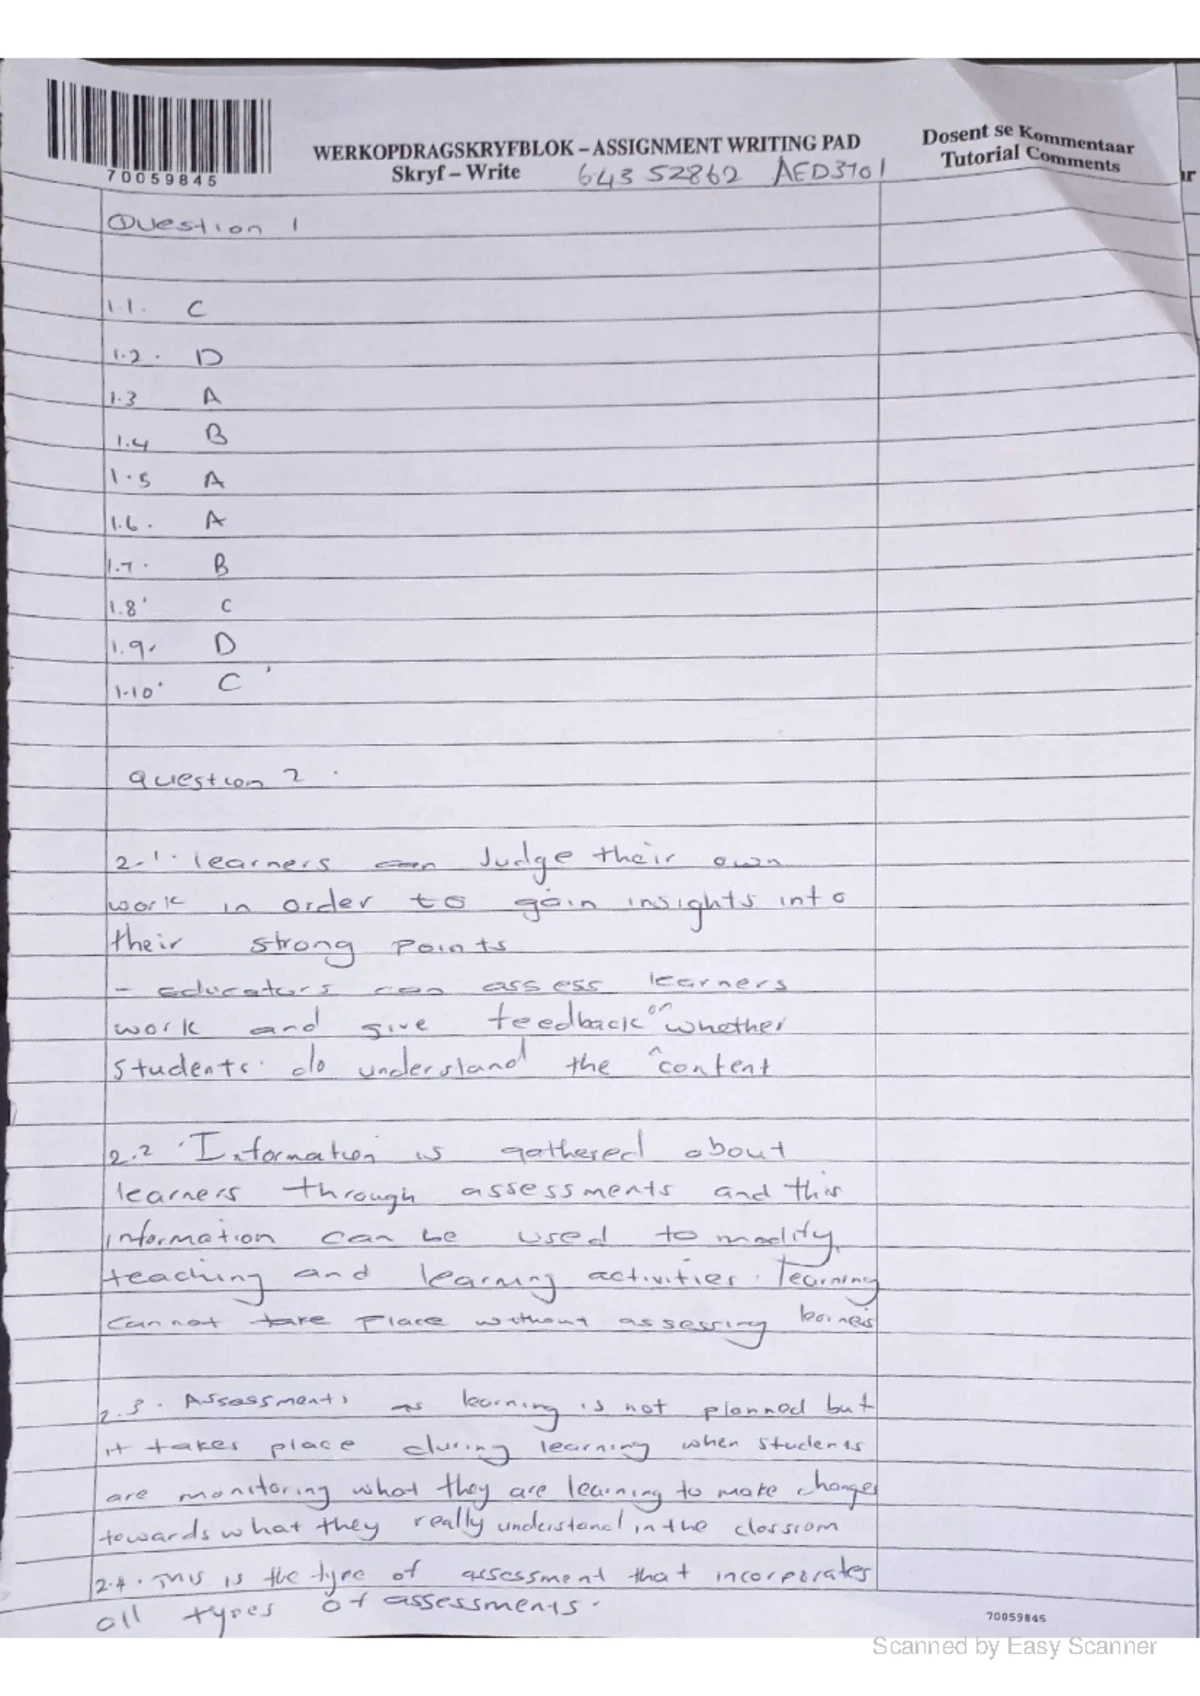 70059845
WERKOPDRAGSKRYFBLOK – ASSIGNMENT WRITING PAD
Skryf – Write
64352862 AED3701
Dosent se Kommentaar
Tutorial Comments
Question 1
1.1. C
1.2. D
1.3 A
1.4 B
1.5 A
1.6. A
1.7. B
1.8. C
1.9. D
1.10. C
Question 2.
2.1. learners can Judge their own
work in order to gain insights into
their strong points
- educators can assess learners
work and give feedback on whether
students do understand the content
2.2 Information is gathered about
learners through assessments and this
information can be used to modify
teaching and learning activities. Learning
cannot take place without assessing
2.3. Assessments as learning is not planned but
it takes place during learning when students
are monitoring what they are learning to make change
towards what they really understand in the classroom
2.4. This is the type of assessment that incorporates
all types of assessments.
70059845
Scanned by Easy Scanner